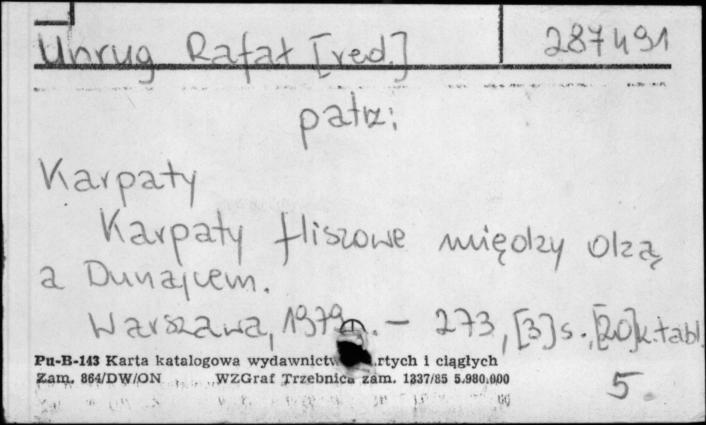 Unrug Rafał [red.] 287491
patrz:
Karpaty
Karpaty fliszowe między Olzą
a Dunajcem.
Warszawa, 1979. - 273, [3] s., [20] k. tabl.
Pu-B-143 Karta katalogowa wydawnictw rtych i ciągłych
Zam. 864/DW/ON WZGraf Trzebnica zam. 1337/85 5.980.000
5.